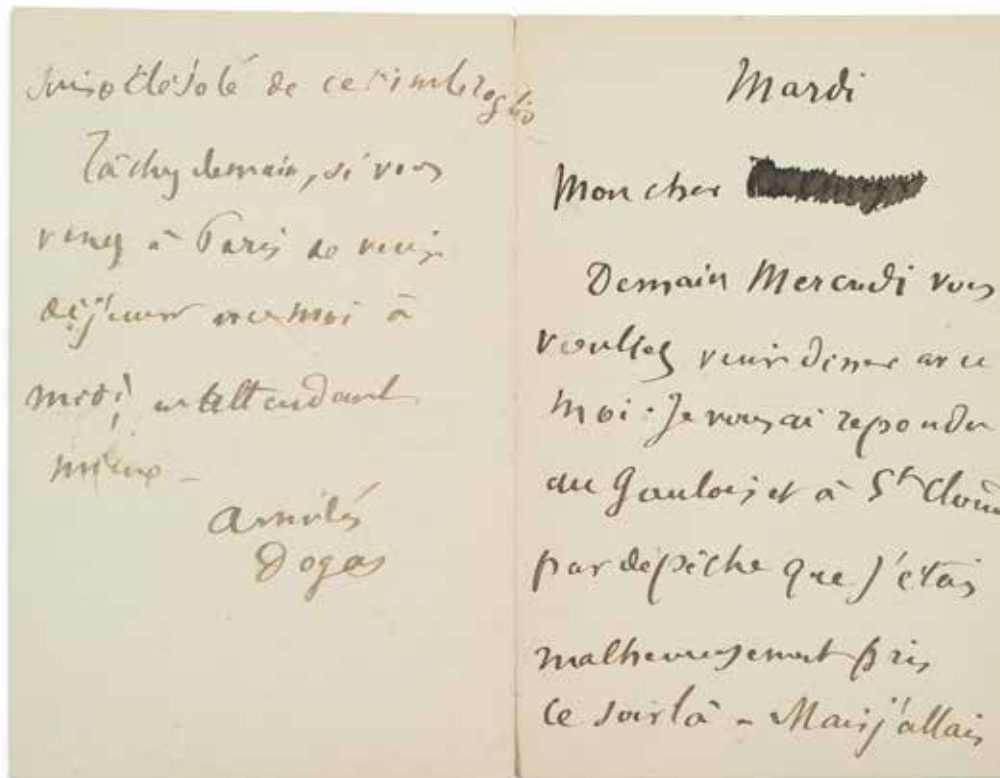 Mardi
Mon cher
Demain Mercredi vous
vouliez venir dîner avec
moi. Je vous ai répondu
au Gaulois et à St Cloud
par dépêche que j'étais
malheureusement pris
ce soir là - Mais j'allais
suis désolé de cet imbroglio
Tâchez demain, si vous
venez à Paris de venir
déjeuner avec moi à
midi, en attendant
mieux -
Amitiés
Degas